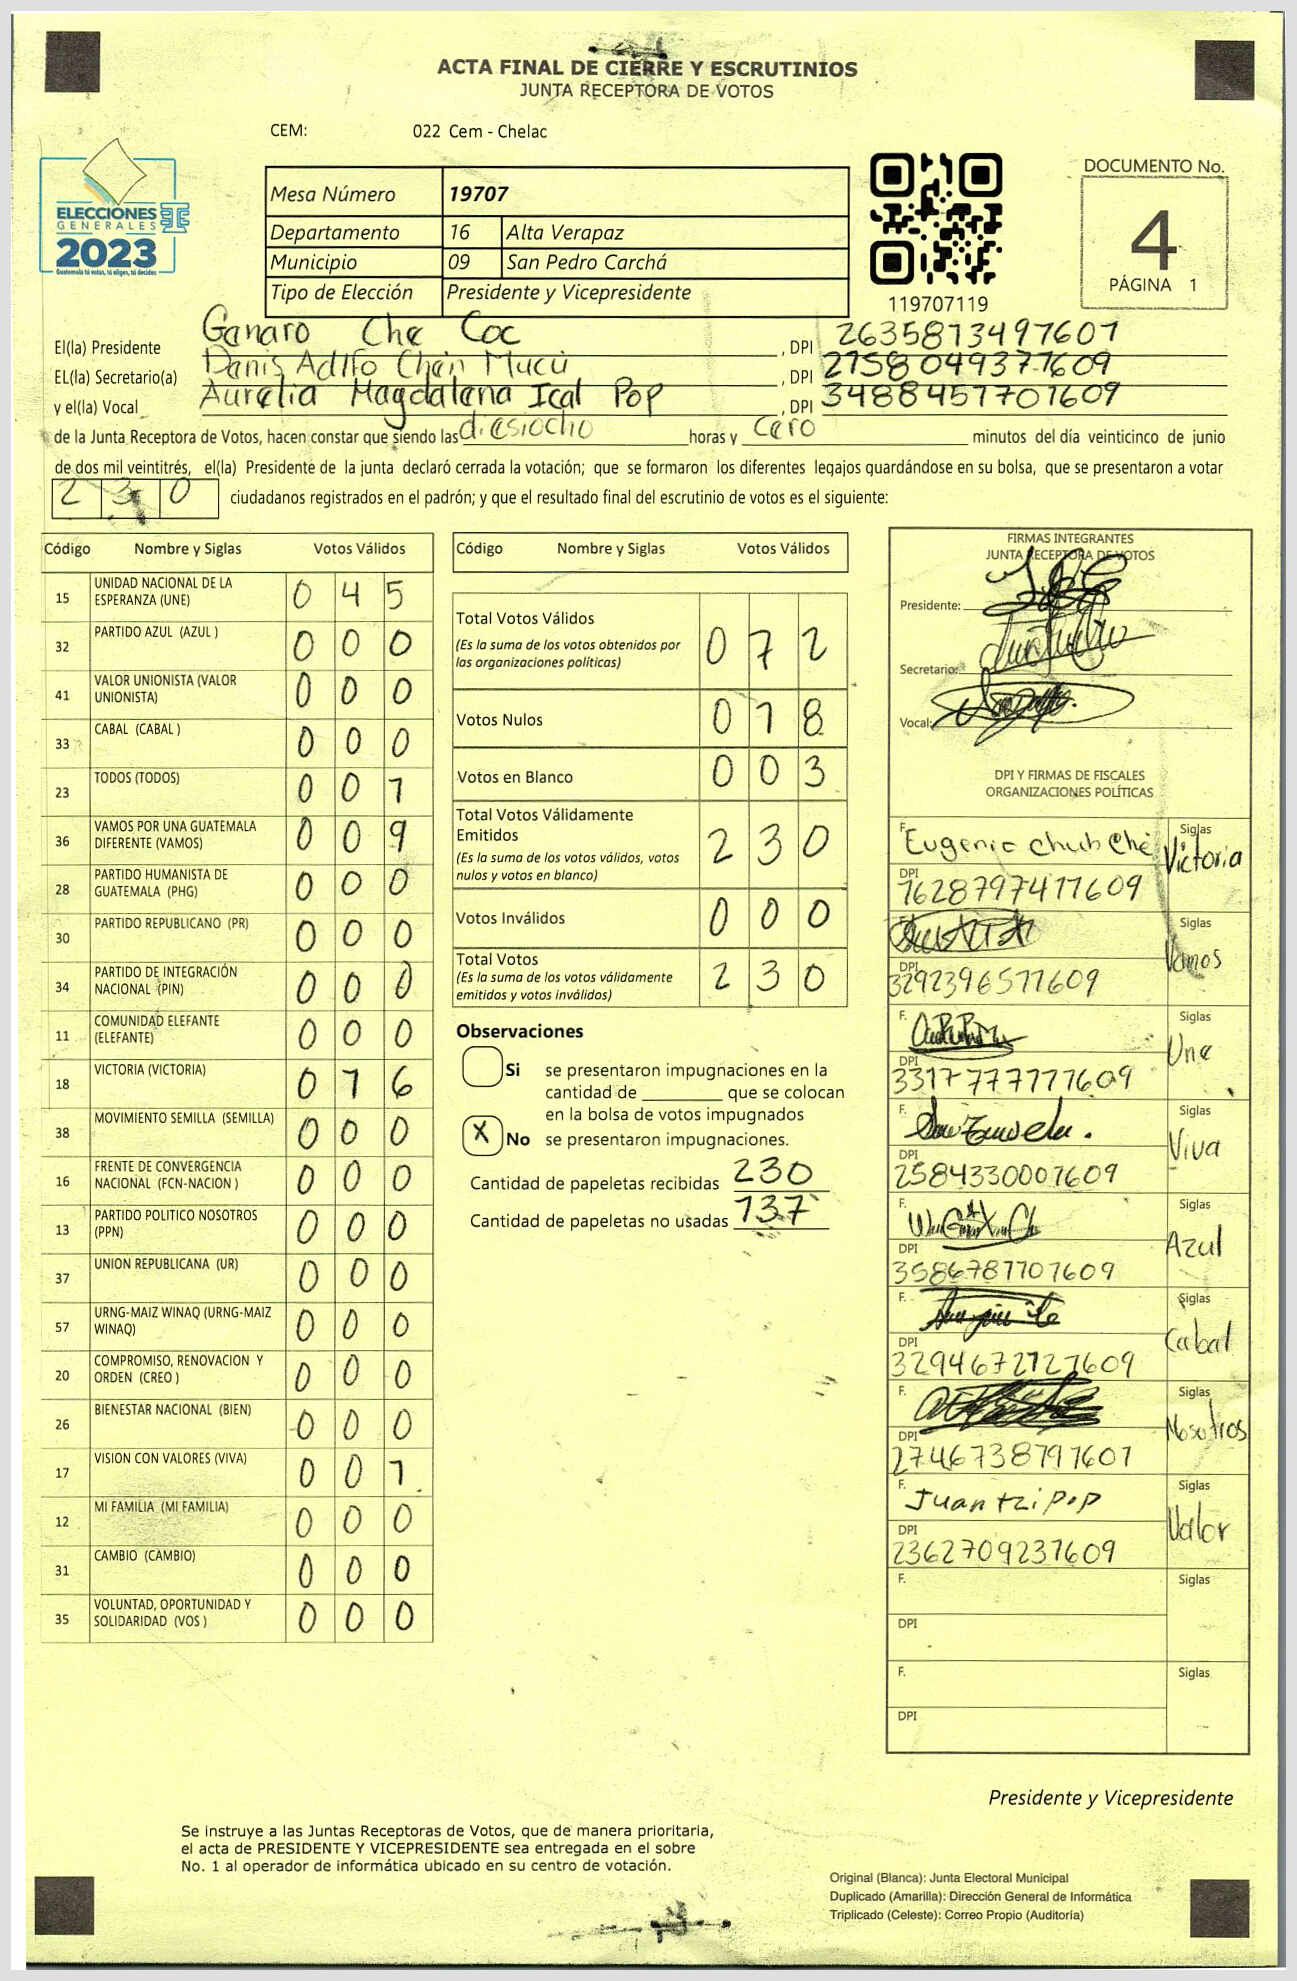 ACTA FINAL DE CIERRE Y ESCRUTINIOS
JUNTA RECEPTORA DE VOTOS
CEM: 022 Cem - Chelac
ELECCIONES
GENERALES
2023
Guatemala tú votas, tú eliges, tú decides
Mesa Número 19707
Departamento 16 Alta Verapaz
Municipio 09 San Pedro Carchá
Tipo de Elección Presidente y Vicepresidente
119707119
DOCUMENTO No.
4
PÁGINA 1
El(la) Presidente Ganaro Che Coc , DPI 2635813497601
EL(la) Secretario(a) Danis Adlfo Chén Mucú , DPI 2758049371609
y el(la) Vocal Aurelia Magdalena Ical Pop , DPI 3488457701609
de la Junta Receptora de Votos, hacen constar que siendo las diesiocho horas y cero minutos del día veinticinco de junio
de dos mil veintitrés, el(la) Presidente de la junta declaró cerrada la votación; que se formaron los diferentes legajos guardándose en su bolsa, que se presentaron a votar
230 ciudadanos registrados en el padrón; y que el resultado final del escrutinio de votos es el siguiente:
Código Nombre y Siglas Votos Válidos
15 UNIDAD NACIONAL DE LA ESPERANZA (UNE) 0 4 5
32 PARTIDO AZUL (AZUL ) 0 0 0
41 VALOR UNIONISTA (VALOR UNIONISTA) 0 0 0
33 CABAL (CABAL ) 0 0 0
23 TODOS (TODOS) 0 0 1
36 VAMOS POR UNA GUATEMALA DIFERENTE (VAMOS) 0 0 9
28 PARTIDO HUMANISTA DE GUATEMALA (PHG) 0 0 0
30 PARTIDO REPUBLICANO (PR) 0 0 0
34 PARTIDO DE INTEGRACIÓN NACIONAL (PIN) 0 0 0
11 COMUNIDAD ELEFANTE (ELEFANTE) 0 0 0
18 VICTORIA (VICTORIA) 0 1 6
38 MOVIMIENTO SEMILLA (SEMILLA) 0 0 0
16 FRENTE DE CONVERGENCIA NACIONAL (FCN-NACION ) 0 0 0
13 PARTIDO POLITICO NOSOTROS (PPN) 0 0 0
37 UNION REPUBLICANA (UR) 0 0 0
57 URNG-MAIZ WINAQ (URNG-MAIZ WINAQ) 0 0 0
20 COMPROMISO, RENOVACION Y ORDEN (CREO ) 0 0 0
26 BIENESTAR NACIONAL (BIEN) 0 0 0
17 VISION CON VALORES (VIVA) 0 0 1
12 MI FAMILIA (MI FAMILIA) 0 0 0
31 CAMBIO (CAMBIO) 0 0 0
35 VOLUNTAD, OPORTUNIDAD Y SOLIDARIDAD (VOS ) 0 0 0
Código Nombre y Siglas Votos Válidos
Total Votos Válidos 0 7 2
(Es la suma de los votos obtenidos por
las organizaciones políticas)
Votos Nulos 0 1 8
Votos en Blanco 0 0 3
Total Votos Válidamente
Emitidos 2 3 0
(Es la suma de los votos válidos, votos
nulos y votos en blanco)
Votos Inválidos 0 0 0
Total Votos 2 3 0
(Es la suma de los votos válidamente
emitidos y votos inválidos)
Observaciones
Si se presentaron impugnaciones en la
cantidad de ________ que se colocan
en la bolsa de votos impugnados
X No se presentaron impugnaciones.
Cantidad de papeletas recibidas 230
Cantidad de papeletas no usadas 137
FIRMAS INTEGRANTES
JUNTA RECEPTORA DE VOTOS
Presidente:
Secretario:
Vocal:
DPI Y FIRMAS DE FISCALES
ORGANIZACIONES POLÍTICAS
F. Eugenio Chub Ché Siglas Victoria
DPI 1628797411609
F. Siglas Vamos
DPI 3292396511609
F. Siglas Une
DPI 3317777771609
F. Siglas Viva
DPI 2584330001609
F. Siglas Azul
DPI 3586787101609
F. Siglas Cabal
DPI 3294672121609
F. Siglas Nosotros
DPI 2746738191601
F. Juan tzi pop Siglas Valor
DPI 2362709231609
F. Siglas
DPI
F. Siglas
DPI
Presidente y Vicepresidente
Se instruye a las Juntas Receptoras de Votos, que de manera prioritaria,
el acta de PRESIDENTE Y VICEPRESIDENTE sea entregada en el sobre
No. 1 al operador de informática ubicado en su centro de votación.
Original (Blanca): Junta Electoral Municipal
Duplicado (Amarilla): Dirección General de Informática
Triplicado (Celeste): Correo Propio (Auditoría)